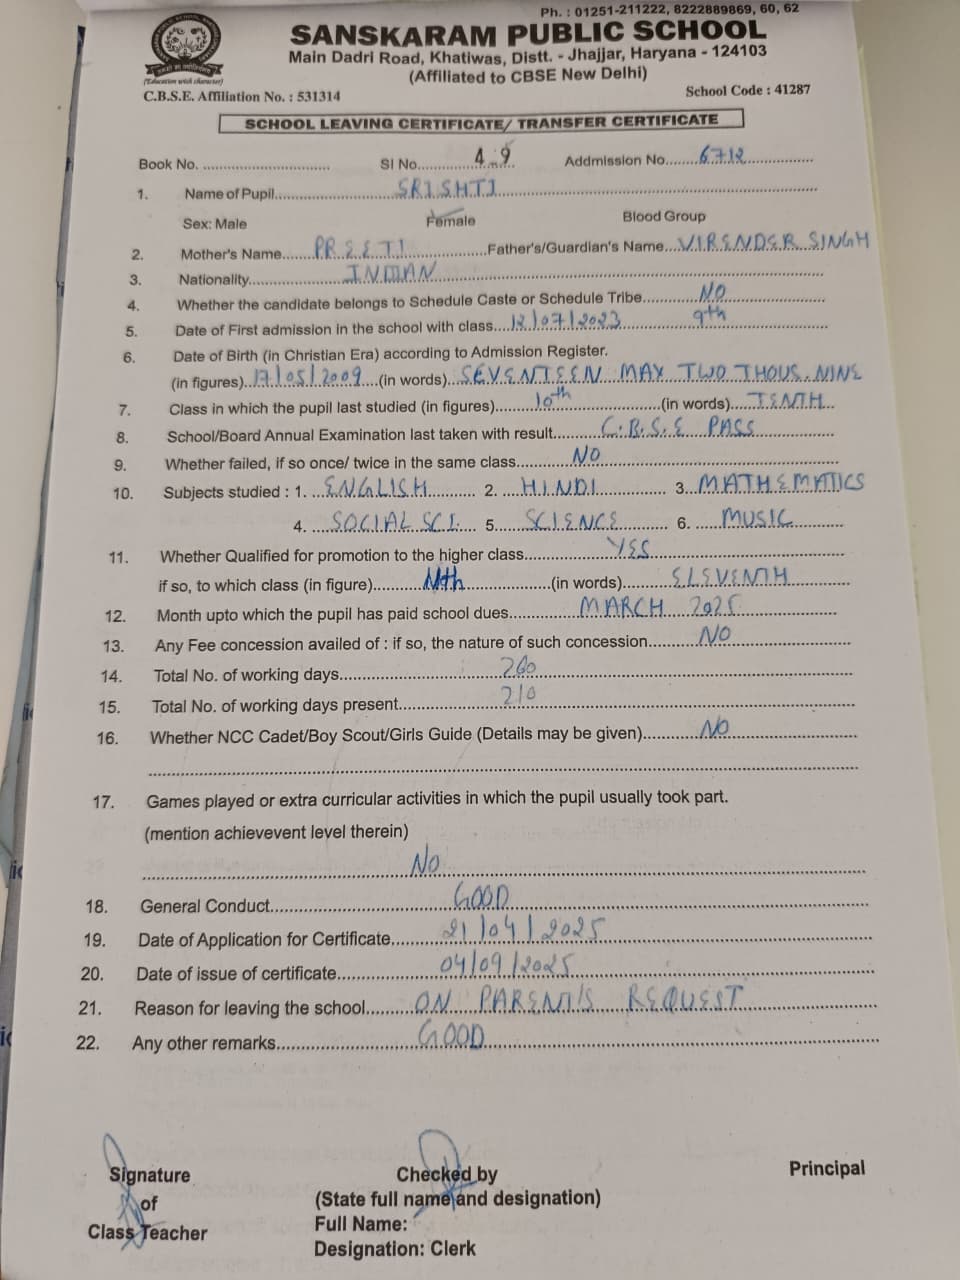 Ph. : 01251-211222, 8222889869, 60, 62
SANSKARAM PUBLIC SCHOOL
Main Dadri Road, Khatiwas, Distt. - Jhajjar, Haryana - 124103
(Affiliated to CBSE New Delhi)
(Education with character)
C.B.S.E. Affiliation No. : 531314 School Code : 41287
SCHOOL LEAVING CERTIFICATE/ TRANSFER CERTIFICATE
Book No. .............................. Sl No. 49 Addmission No. 6712
1. Name of Pupil SRISHTI
Sex: Male Female Blood Group
2. Mother's Name PREETI Father's/Guardian's Name VIRENDER SINGH
3. Nationality INDIAN
4. Whether the candidate belongs to Schedule Caste or Schedule Tribe NO
5. Date of First admission in the school with class 12/07/2023 9th
6. Date of Birth (in Christian Era) according to Admission Register.
(in figures) 17/05/2009 (in words) SEVENTEEN MAY TWO THOUS. NINE
7. Class in which the pupil last studied (in figures) 10th (in words) TENTH
8. School/Board Annual Examination last taken with result C.B.S.E PASS
9. Whether failed, if so once/ twice in the same class NO
10. Subjects studied : 1. ENGLISH 2. HINDI 3. MATHEMATICS
4. SOCIAL SCI. 5. SCIENCE 6. MUSIC
11. Whether Qualified for promotion to the higher class YES
if so, to which class (in figure) 11th (in words) ELEVENTH
12. Month upto which the pupil has paid school dues MARCH 2025
13. Any Fee concession availed of : if so, the nature of such concession NO
14. Total No. of working days 260
15. Total No. of working days present 210
16. Whether NCC Cadet/Boy Scout/Girls Guide (Details may be given) NO
17. Games played or extra curricular activities in which the pupil usually took part.
(mention achievevent level therein)
NO
18. General Conduct GOOD
19. Date of Application for Certificate 21/04/2025
20. Date of issue of certificate 04/09/2025
21. Reason for leaving the school ON PARENT'S REQUEST
22. Any other remarks GOOD
Signature Checked by Principal
of (State full name and designation)
Class Teacher Full Name:
Designation: Clerk